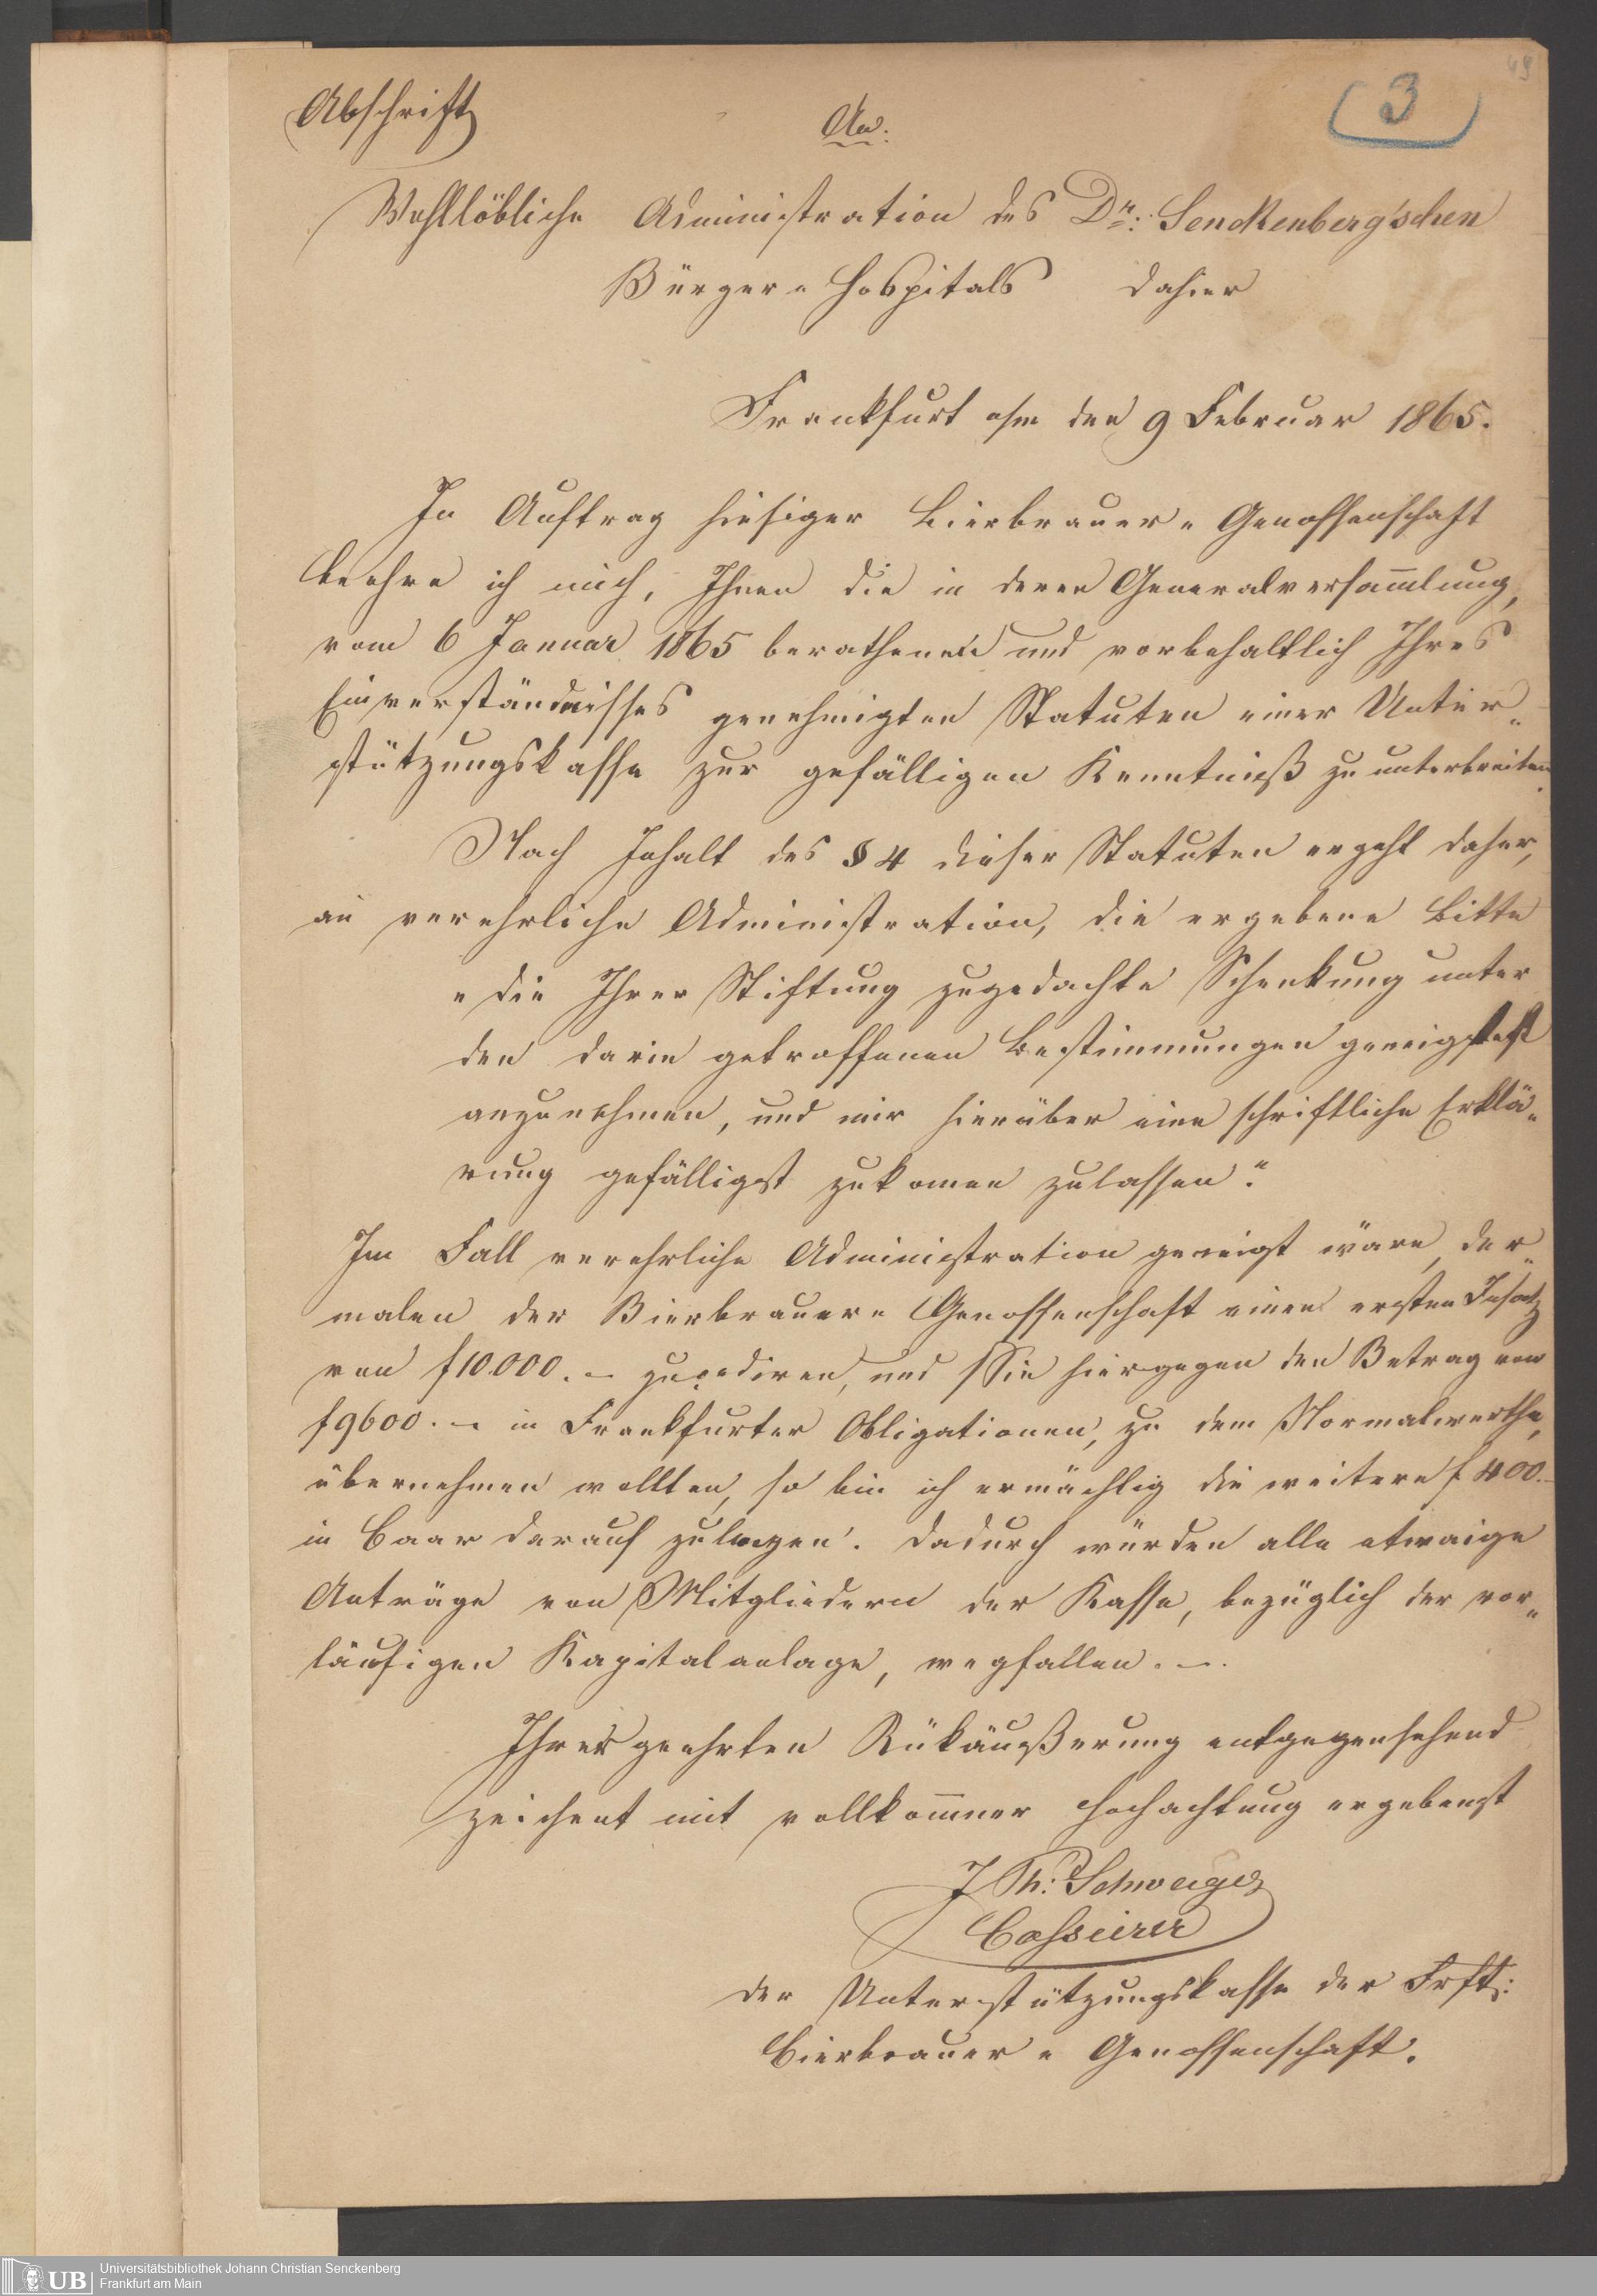 49
3
Abschrift
An.
Wohllöbliche Administration des Dr: Senckenberg'schen
Bürger„ Hospitals dahier
Frankfurt a/m den 9 Februar 1865.
Im Auftrag hiesiger Bierbrauer„ Genossenschaft
beehre ich mich, Ihnen die in deren Generalversam̅lung,
vom 6 Januar 1865 berathenen und vorbehaltlich Ihres
Einverständnisses genehmigten Statuten einer Unter„
stützungskasse zur gefälligen Kenntniß zu unterbreiten.
Nach Inhalt des § 4 dieser Statuten ergeht daher,
an verehrliche Administration, die ergebene Bitte
„die Ihrer Stiftung zugedachte Schenkung unter
den darin getroffenen Bestimmungen geneigtest
anzunehmen, und mir hierüber eine schriftliche Erklä„
rung gefälligst zukomen zulassen“.
Im Fall verehrliche Administration geneigt wäre, der„
malen der Bierbrauer„ Genossenschaft einen ersten Insatz
von f 10.000. – zu cediren, und Sie hiergegen den Betrag von
f 9600. – in Frankfurter Obligationen, zu dem Normalwerthe,
übernehmen wollten, so bin ich ermächtig die weitere f 400.–
in Baar darauf zulegen. Dadurch würden alle etwaige
Anträge von Mitgliedern der Kasse, bezüglich der vor„
läufigen Kapitalanlage, wegfallen. –.
Ihrer geehrten Rükäußerung entgegensehend
zeichent mit vollkom̅ner Hochachtung ergebenst
J Th: Schweiger
Cassierer
der Unterstützungskasse der Frft:
Bierbrauer„ Genossenschaft.
UB Universitätsbibliothek Johann Christian Senckenberg
Frankfurt am Main